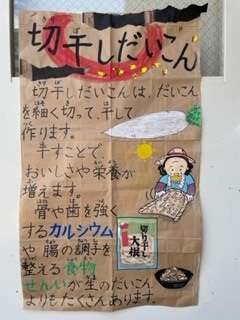 切干しだいこん
切干しだいこんは、だいこん
を細く切って、干して
作ります。
干すことで
おいしさや栄養が
増えます。
骨や歯を強く
するカルシウム
や腸の調子を
整える食物
せんいが生のだいこん
よりもたくさんあります。
切り干し
大根